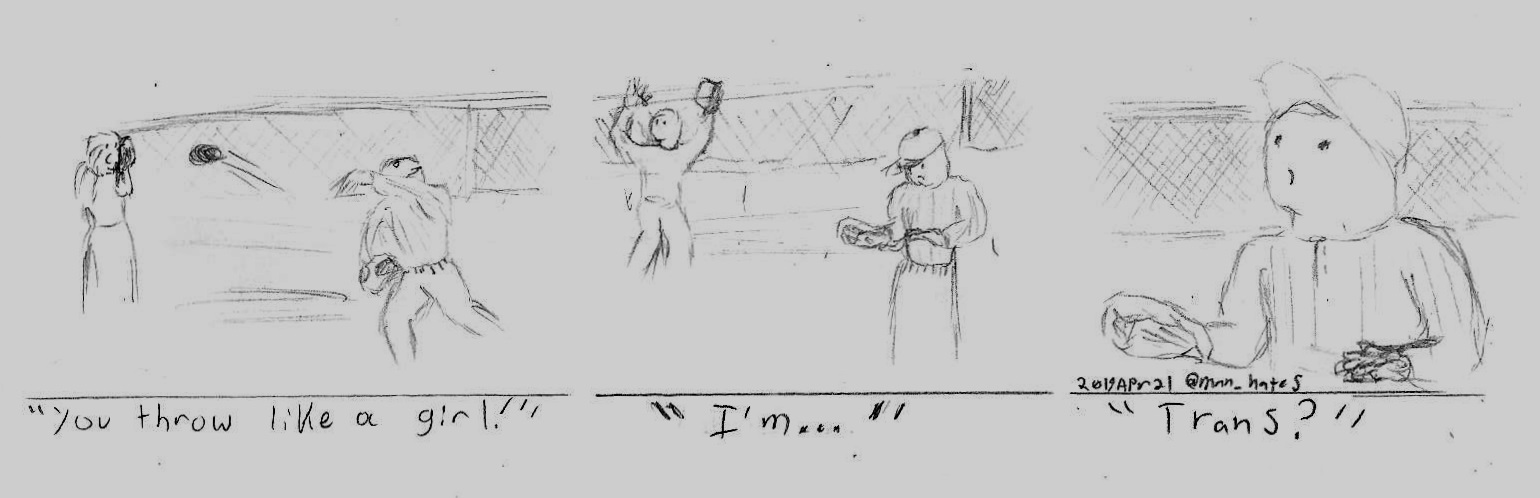 "You throw like a girl!"
"I'm..."
2019APr21
"Trans?"